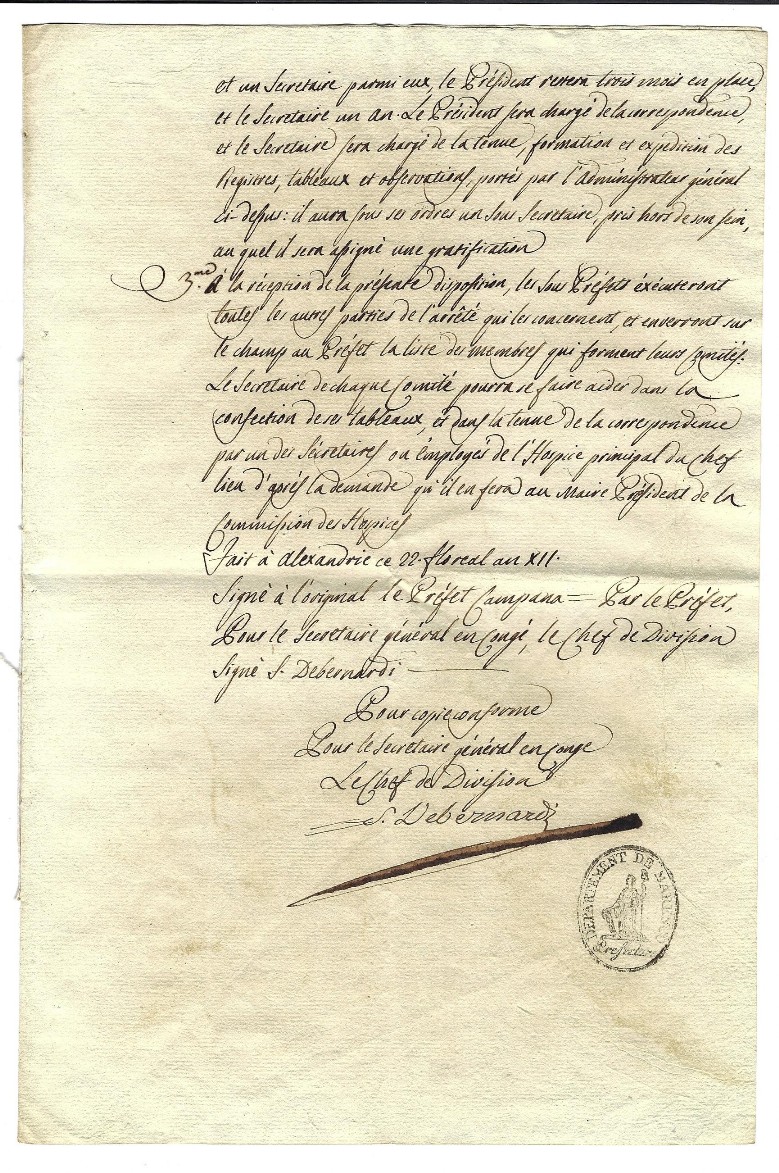 et un Secretaire parmi eux, le Président restera trois mois en place,
et le Secretaire un an. Le Président sera chargé de la correspondence,
et le Secretaire sera chargé de la tenue, formation et expédition des
Registres, tableaux et observations, portés par l'administrateur général
Ci-dessus: il aura sous ses ordres un Sous Secretaire, pris hors de son sein,
au quel il sera assigné une gratification
3.me À la réception de la présente disposition, les Sous Préfets éxécuteront
toutes les autres parties de l'arrêté qui les concernent, et enverront sur
le champ au Préfet la liste des membres qui forment leurs Comités.
Le Secretaire de chaque Comité pourra se faire aider dans la
confection de ses tableaux, et dans la tenue de la correspondence
par un des Sécretaires ou émployés de l'Hospice principal du Chef
lieu d'aprés la demande qu'il en fera au Maire Président de la
Commission des Hospices
Fait à Alexandrie ce 22. floreal an XII.
Signé à l'original le Préfet Campana = Par le Préfet,
Pour le Secretaire général en Congé, le Chef de Division
Signé S. Debernardi
Pour copie conforme
Pour le Secretaire général en Congé
Le Chef de Division
S. Debernardi
DEPARTEMENT DE MARENGO
Prefecture